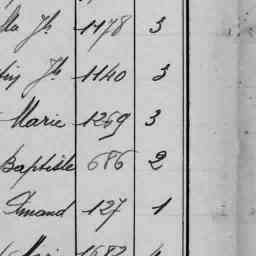 Jh 1178 3
Jh 1140 3
Marie 1269 3
Baptiste 686 2
Amand 127 1